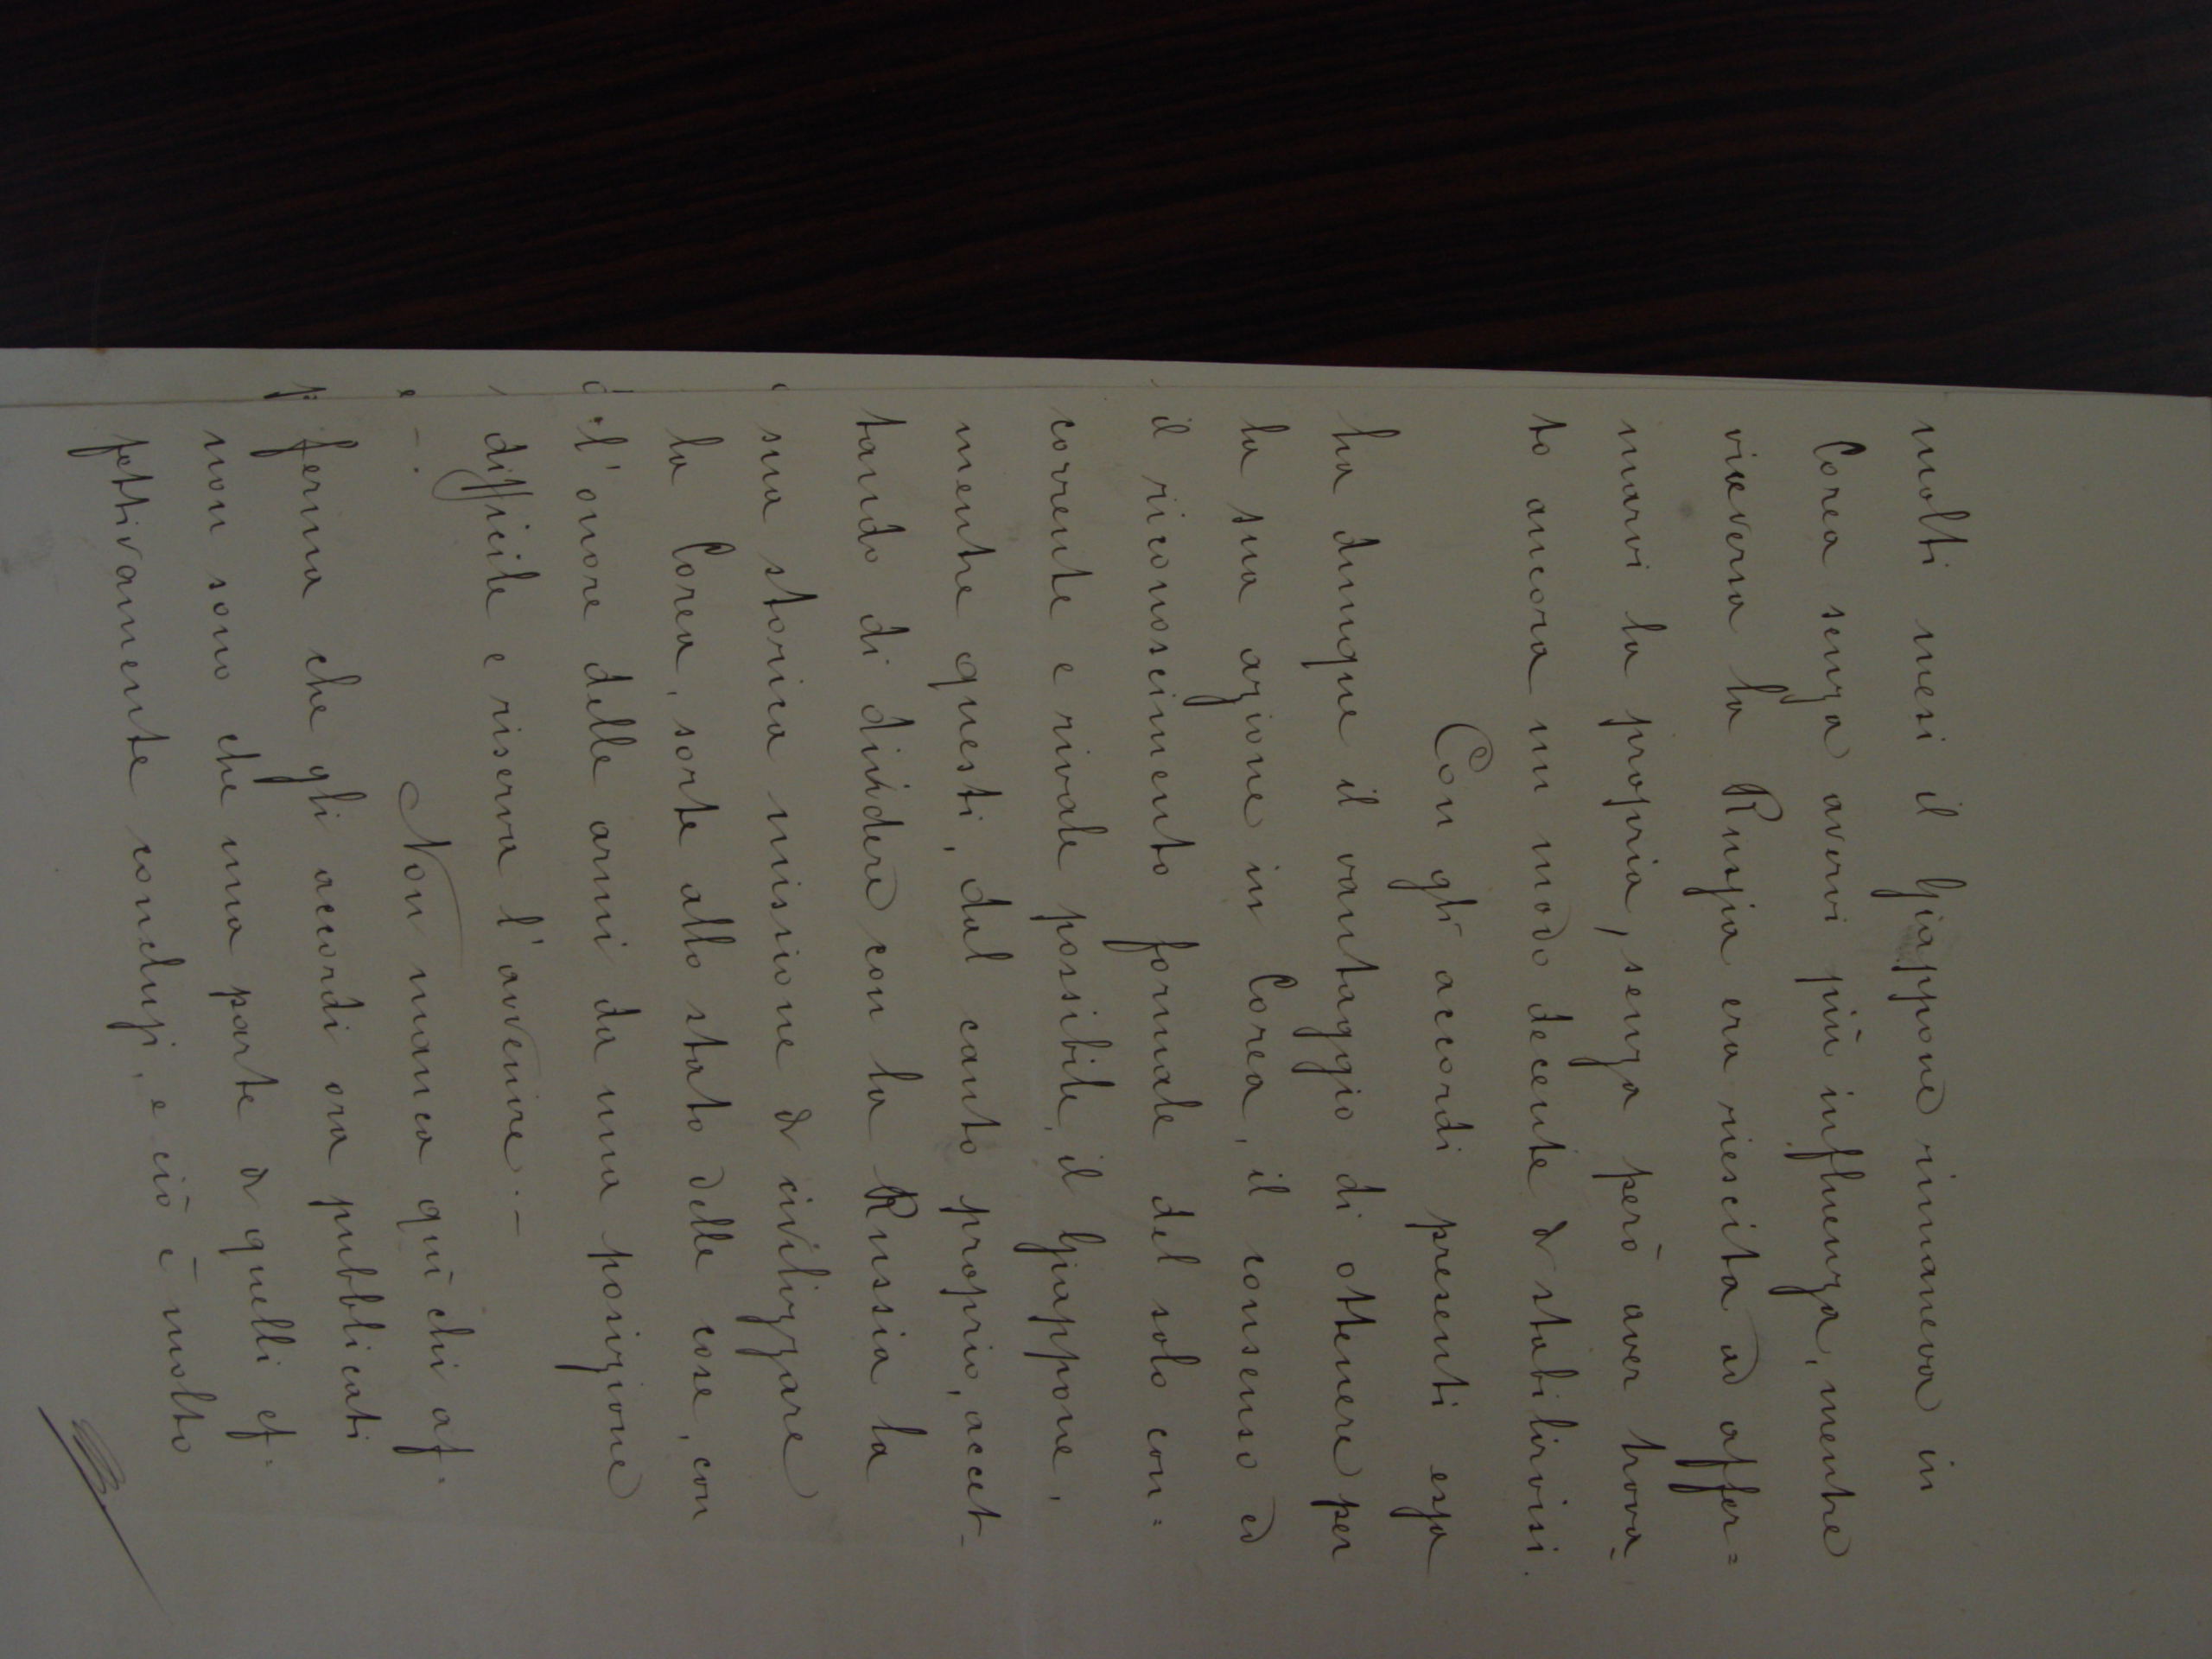 molti mesi il Giappone rimaneva in
Corea senza avervi più influenza, mentre
viceversa la Russia era riescita ad affer=
marvi la propria, senza però aver trova-
to ancora un modo decente di stabilirvisi.
Con gli accordi presenti essa
ha dunque il vantaggio di ottenere per
la sua azione in Corea, il consenso ed
il riconoscimento formale del solo con=
corrente e rivale possibile, il Giappone,
mentre questi, dal canto proprio, accet-
tando di dividere con la Russia la
sua storica missione di civilizzare
la Corea, sorte allo stato delle cose, con
l'onore delle armi da una posizione
difficile e riserva l'avvenire. -
Non manca quì chi af-
ferma che gli accordi ora pubblicati
non sono che una parte di quelli ef=
fettivamente conclusi, e ciò è molto